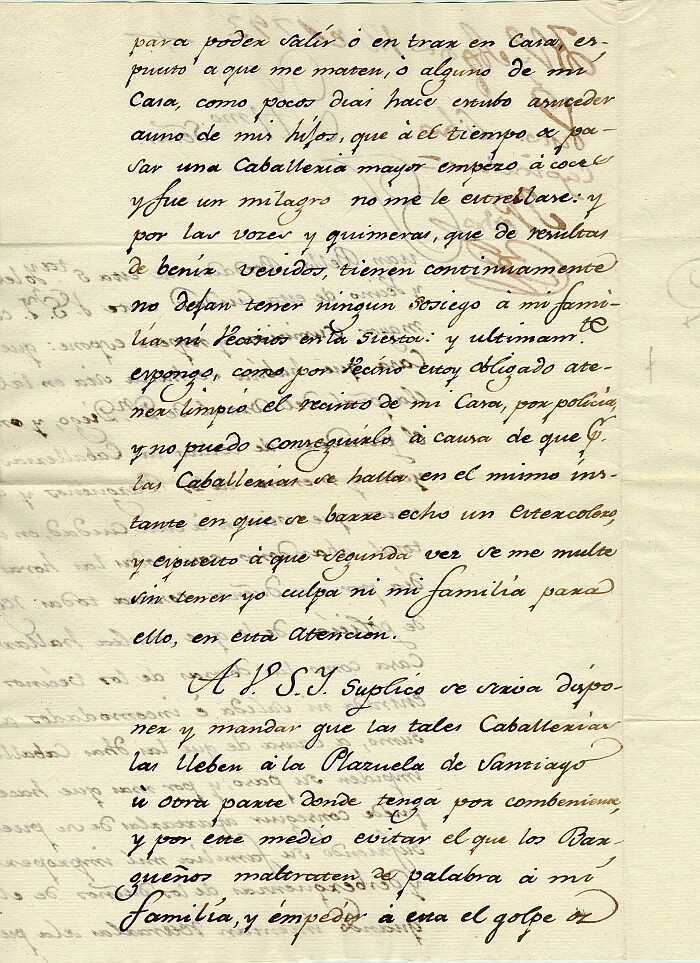 para poder salir ò entrar en Casa, es-
puesto a que me maten, ò alguno de mi
Casa, como pocos dias hace estubo asuceder
auno de mis hijos, que à el tiempo de pa-
sar una Caballeria mayor empezo à coces
y fue un milagro no me le estrellase: y
por las vozes y quimeras, que de resultas
de benir vevidos, tienen continuamente
no dejan tener ningun sosiego à mi fami-
lia ni Vecinos en la siesta: y ultimamte.
espongo, como por Vecino estoy obligado ate-
ner limpio el recinto de mi Casa, por policia,
y no puedo conseguirlo à causa de que
las Caballerias se halla en el mimo ins-
tante en que se barre echo un Estercolero,
y espuesto à que segunda vez se me multe
sin tener yo culpa ni mi familia para
ello, en esta atención.
A V. S. Y. suplico se sirva dispo-
ner y mandar que las tales Caballerias
las lleben à la Plazuela de Santiago
ù otra parte donde tenga por combeniente,
y por este medio evitar el que los Bar-
queños maltraten de palabra à mi
familia, y émpedir à esta el golpe de